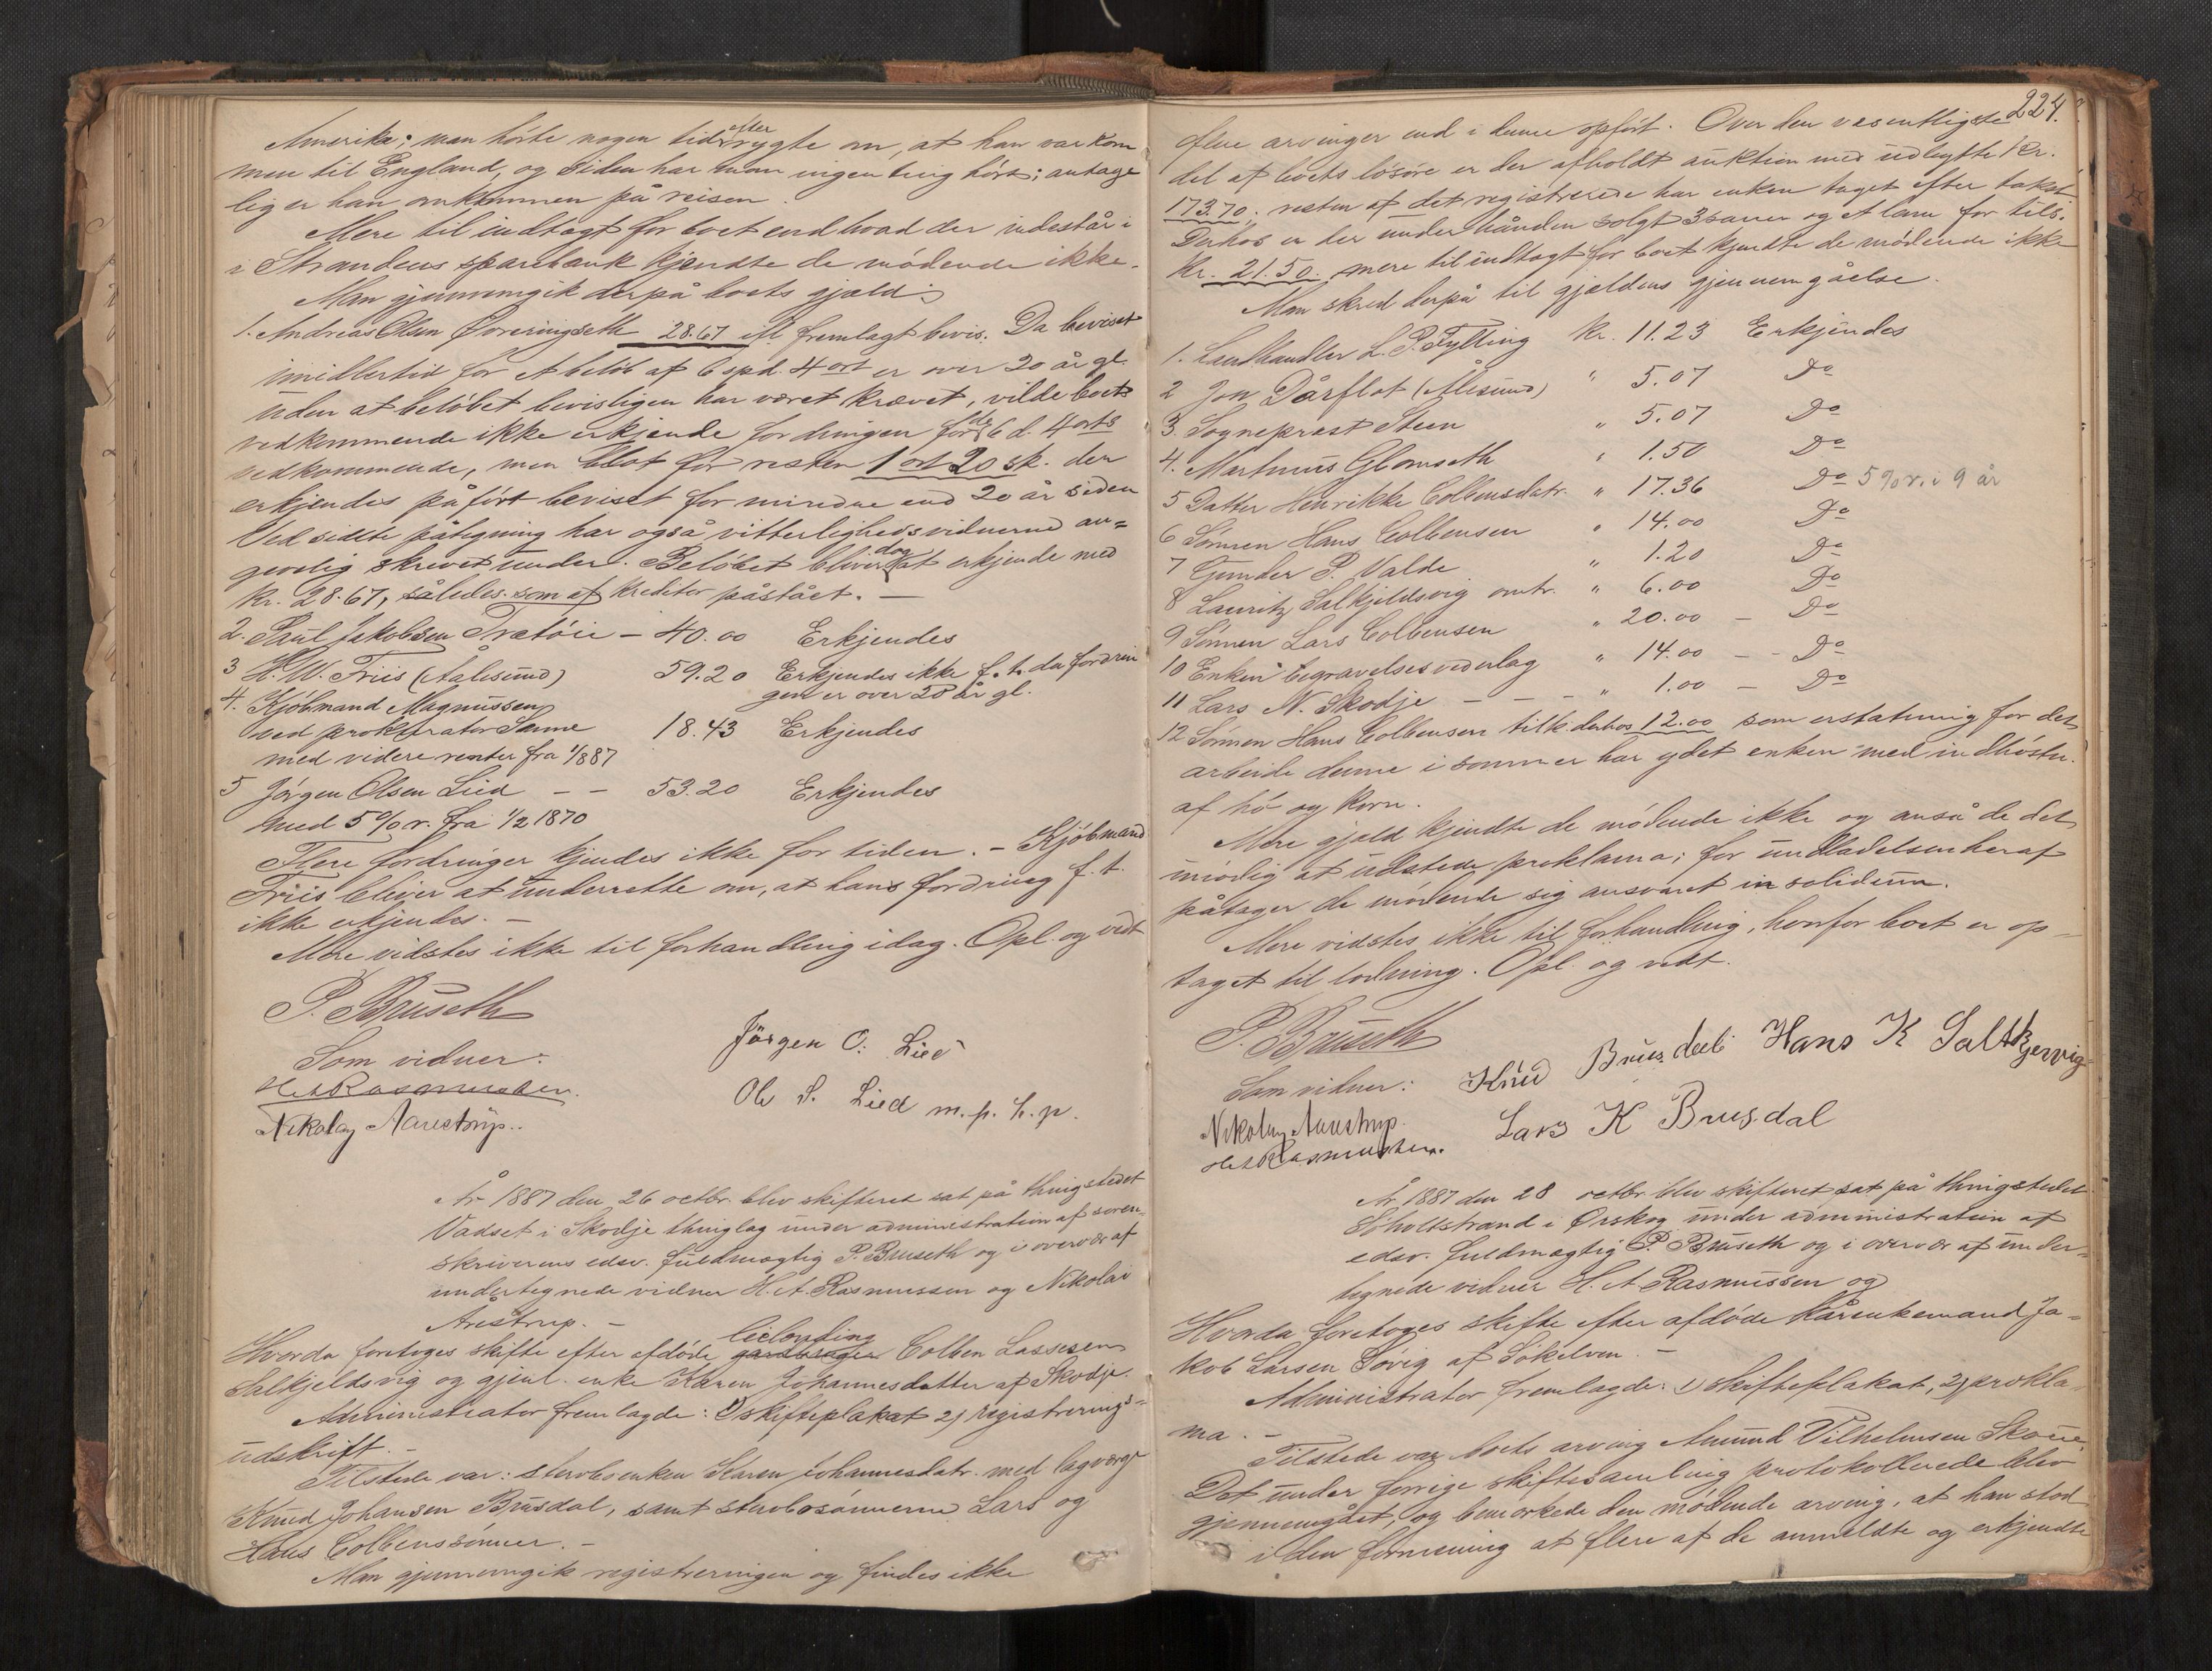 Amerika; man hörte nogen tid efter rygte om, at han var kom
men til England, og siden har man ingen ting hört; antage
lig er han omkommen på reisen.
Mere til indtægt for boet end hvad der indestår i
i Strandens sparebank kjendte de mödende ikke.
Man gjennemgik derpå boets gjæld:
1. Andreas Olsen 28.67 ifl. fremlagt bevis. Da beviset
imidlertid for et belöb af 6 spd. 4 ort er over 20 år gl.
uden at belöbet bevisligen har været krævet, vilde boets
vedkommende ikke erkjende fordringen for de 6 d. 4 orts
vedkommende, men blot for resten 1 ort 20 sk. der
erkjendes påfört beviset for mindre end 20 år siden
Ved sidste påtegning har også vitterlighedsvidnerne an=
givelig skrevet under. Belöbet bliver dog at erkjende med
Kr. 28.67, således som af kreditor påstået. —
2. Paul Jakobsen Trætöie — 40.00 Erkjendes
3 H. W. Friis (Aalesund) 59.20 Erkjendes ikke f. t. da fordrin
gen er over 20 år gl.
4. Kjöbmand Magnussen
ved prokurator Sanne 18.43 Erkjendes
med videre renter fra 1/8 87
5 Jörgen Olsen Lied — — 53.20 Erkjendes
med 5 % r. fra 1/2 1870
Flere fordringer kjendes ikke for tiden. — Kjöbmand
Friis bliver at underrette om, at hans fordring f. t.
ikke erkjendes. —
Mere vidstes ikke til forhandling idag. Opl. og vedt
P. Bruseth
Jörgen O. Lied
Som vidner:
H A Rasmussen.
Ole S. Lied m. p. h. p.
Nikolay Aarestrup..
År 1887 den 26 octbr. blev skifteret sat på thingstedet
Vadset i Skodje thinglag under administration af soren
skriverens edsv. fuldmægtig P. Bruseth og i overvær af
undertegnede vidner H. A. Rasmussen og Nikolai
Årestrup. —
Hvorda foretoges skifte efter afdöde gardbruger leilending Colben Lassesen
Salkjeldsvig og gjenl. enke Karen Johannesdatter af Skodje.
Administrator fremlagde: 1) skifteplakat 2) registrerings=
udskrift. —
Tilstede var: sterboenken Karen Johannesdatr. med lagværge
Knud Johansen Brusdal, samt sterbosönnerne Lars og
Hans Colbenssönner. —
Man gjennemgik registreringen og findes ikke
224.
flere arvinger end i denne opfört. Over den væsentligste
del af boets lösöre er der afholdt auktion med udbytte kr.
173.70; resten af det registrerede har enken taget efter takst
Derhos er der under hånden solgt 3 sauer og et lam for tils.
Kr. 21.50. mere til indtægt for boet kjendte de mödende ikke
Man skred derpå til gjeldens gjennemgåelse.
1. Landhandler L. P. Fylling Kr. 11.23 Erkjendes
2 Jon Dårflot (Ålesund) " 5.07 Do
3. Sogneprest Steen " 5.07 Do
4. Martinus Glomseth " 1.50 Do
5 Datter Henrikke Colbensdatr. " 17.36 Do 5 % r. i 9 år
6 Sönnen Hans Colbensen " 14.00 Do
7 Gunder P. Valde " 1.20 Do
8 Lauritz Salkjeldsvig omtr. " 6.00 Do
9 Sönnen Lars Colbensen " 20.00 — Do
10 Enken begravelsesvederlag " 14.00 — — Do
11 Lars N. Skodje — — — " 1.00 — Do
12 Sönnen Hans Colbensen tilk. derhos 12.00 som erstatning for det
arbeide denne i sommer har ydet enken med indhöstn.
af hö og korn.
Mere gjæld kjendte de mödende ikke og anså de det
unödig at udstede proklama; for undladelsen heraf
påtager de mödende sig ansvaret in solidum.
Mere vidstes ikke til forhandling, hvorfor boet er op
taget til lodning. Opl. og vedt.
P. Bruseth
Knud Brusdeli Hans K Saltkjervig
Som vidner:
Nikolay Aarestrup.
Lars K Brusdal
H A Rasmussen.
År 1887 den 28 octbr blev skifteret sat på thingstedet
Söholtstrand i Ørskog under administration af
edsv. fuldmægtig P. Bruseth og i overvær af under=
tegnede vidner H. A Rasmussen og
Hvorda foretoges skifte efter afdöde kårenkemand Ja=
kob Larsen Sövig af Sökelven. —
Administrator fremlagde: 1) skifteplakat, 2) prokla
ma. —
Tilstede var boets arving Amund Vilhelmsen Skoue
Det under forrige skiftesamling protokollerede blev
gjennemgået, og bemærkede den mödende arving, at han stod
i den formening at flere af de anmeldte og erkjendte